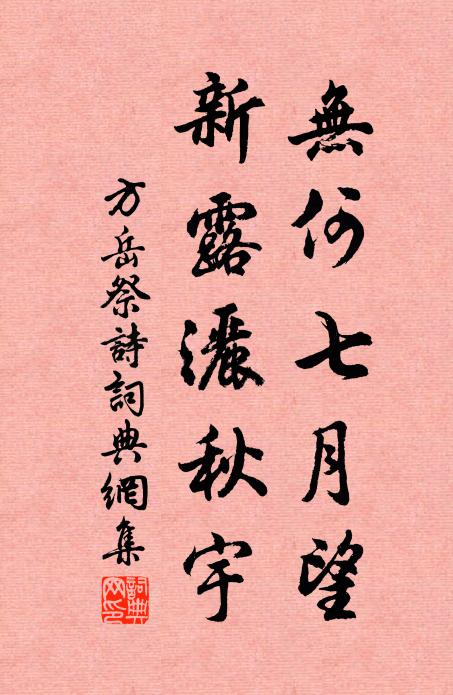 無何七月望
新露灑秋宇
方岳祭詩詞典網集
詞典網印